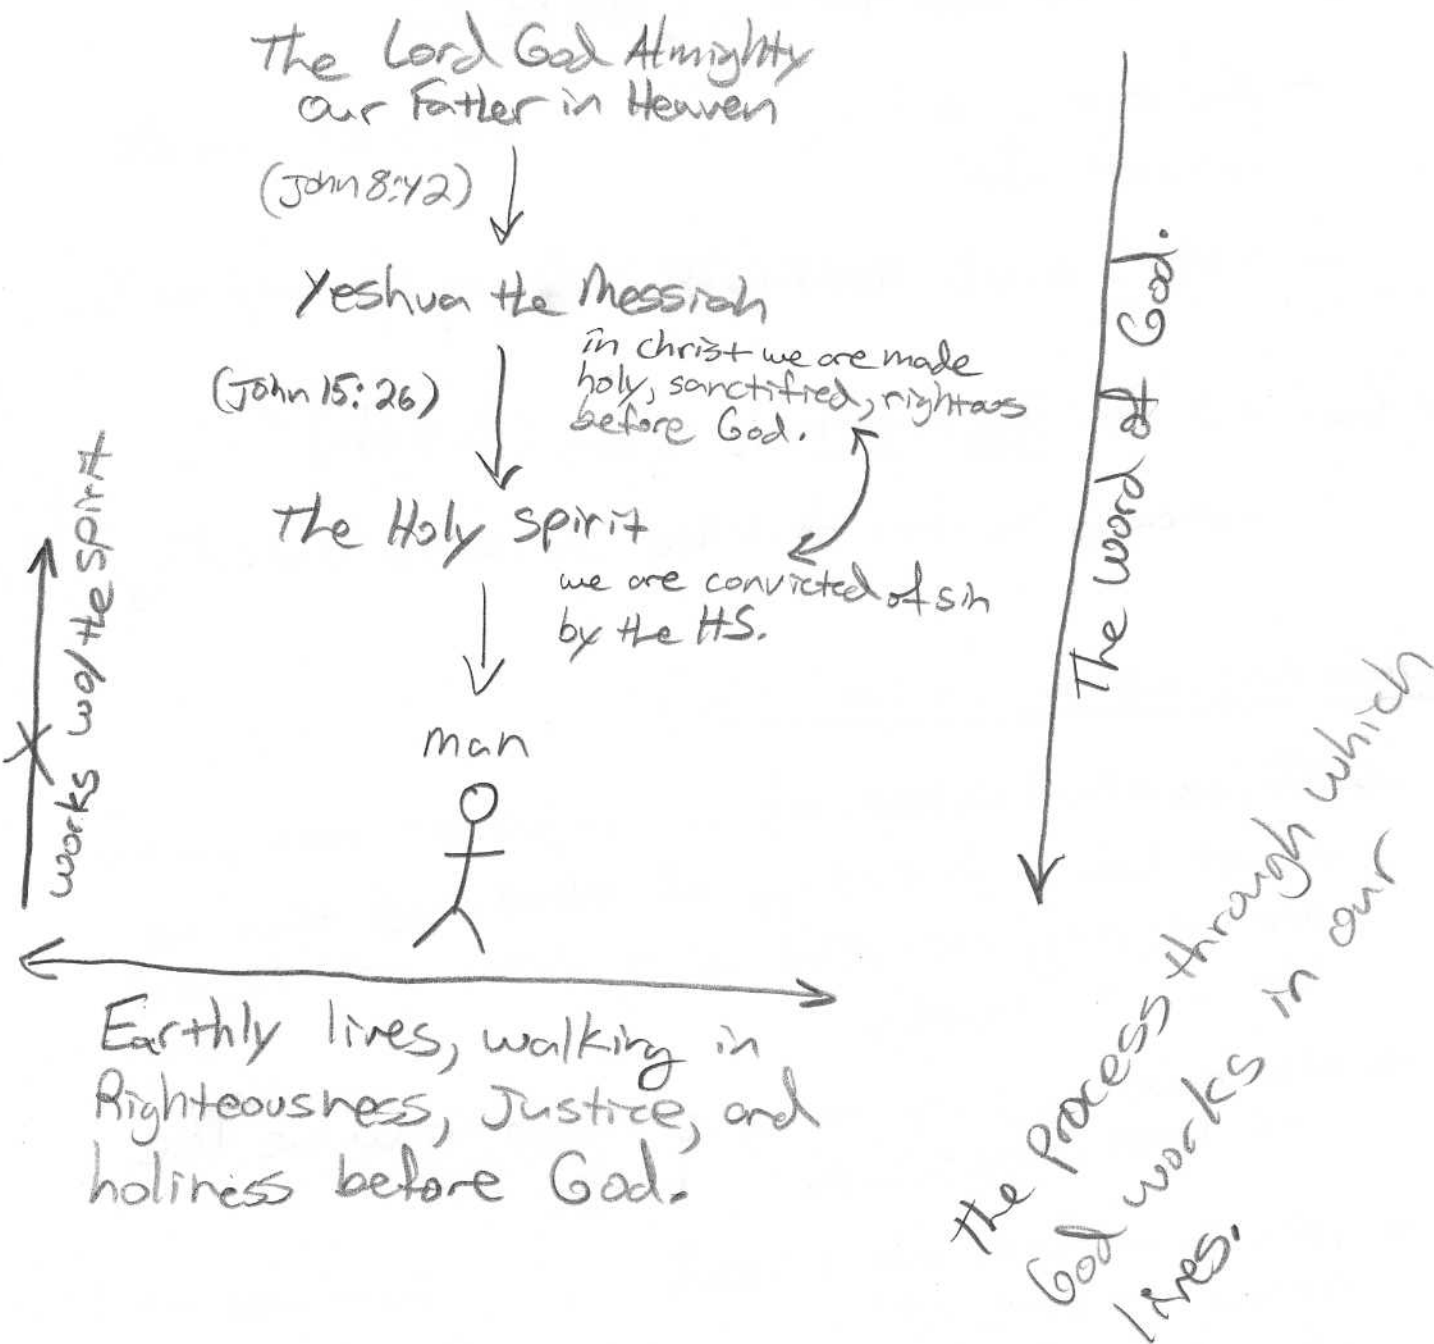 The Lord God Almighty
our Father in Heaven
(John 8:42)
Yeshua the Messiah
in christ we are made
holy, sanctified, righteous
before God.
(John 15:26)
The Holy Spirit
we are convicted of sin
by the HS.
man
works wo/the spirit
The Word of God.
Earthly lives, walking in
Righteousness, Justice, and
holiness before God.
The Process through which
God works in our
lives.